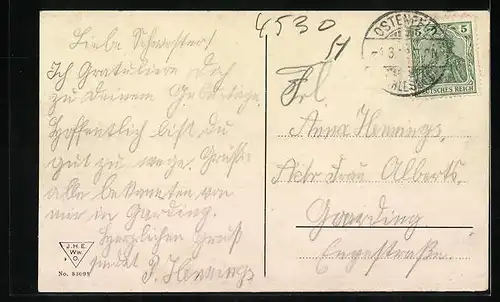 Liebe Schwester!
Ich Gratuliere Dich
zu Deinem Geburtstage.
Hoffentlich bist du
gut zu wege. Grüße
alle bekannten von
mir in Garding.
Herzlichen Gruß
sendet J. Hennings
J.H.E.
Ww.
D.
No. 83098
4530
OSTENFELD
5 5
DEUTSCHES REICH
Frl.
Anna Hennings,
Adr. Frau Alberts,
Garding
Engestraße.